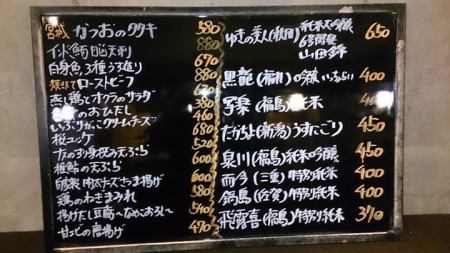 宮城 かつおのタタキ 580
880
白身色々3種うす造り 670
ローストビーフ 880
蒸し鶏とオクラのサラダ
のおひたし 380
いぶりがっこクリームチーズ 460
桜ユッケ 680
520
稚鮎の天ぷら 600
自家製 肉大たこさつま揚げ 600
鶏のわさまみれ 580
揚げだし豆腐〜なめこおろし〜 540
甘エビの唐揚げ 470
ゆきの美人(秋田)純米大吟醸 650
6号酵母
山田錦
黒龍(福井)吟醸 いっちょらい 400
写楽(福島)純米 400
たかちよ(新潟)うすにごり 450
泉川(福島)純米吟醸 450
而今(三重)特別純米 400
鍋島(佐賀)特別純米 400
飛露喜(福島)特別純米 370